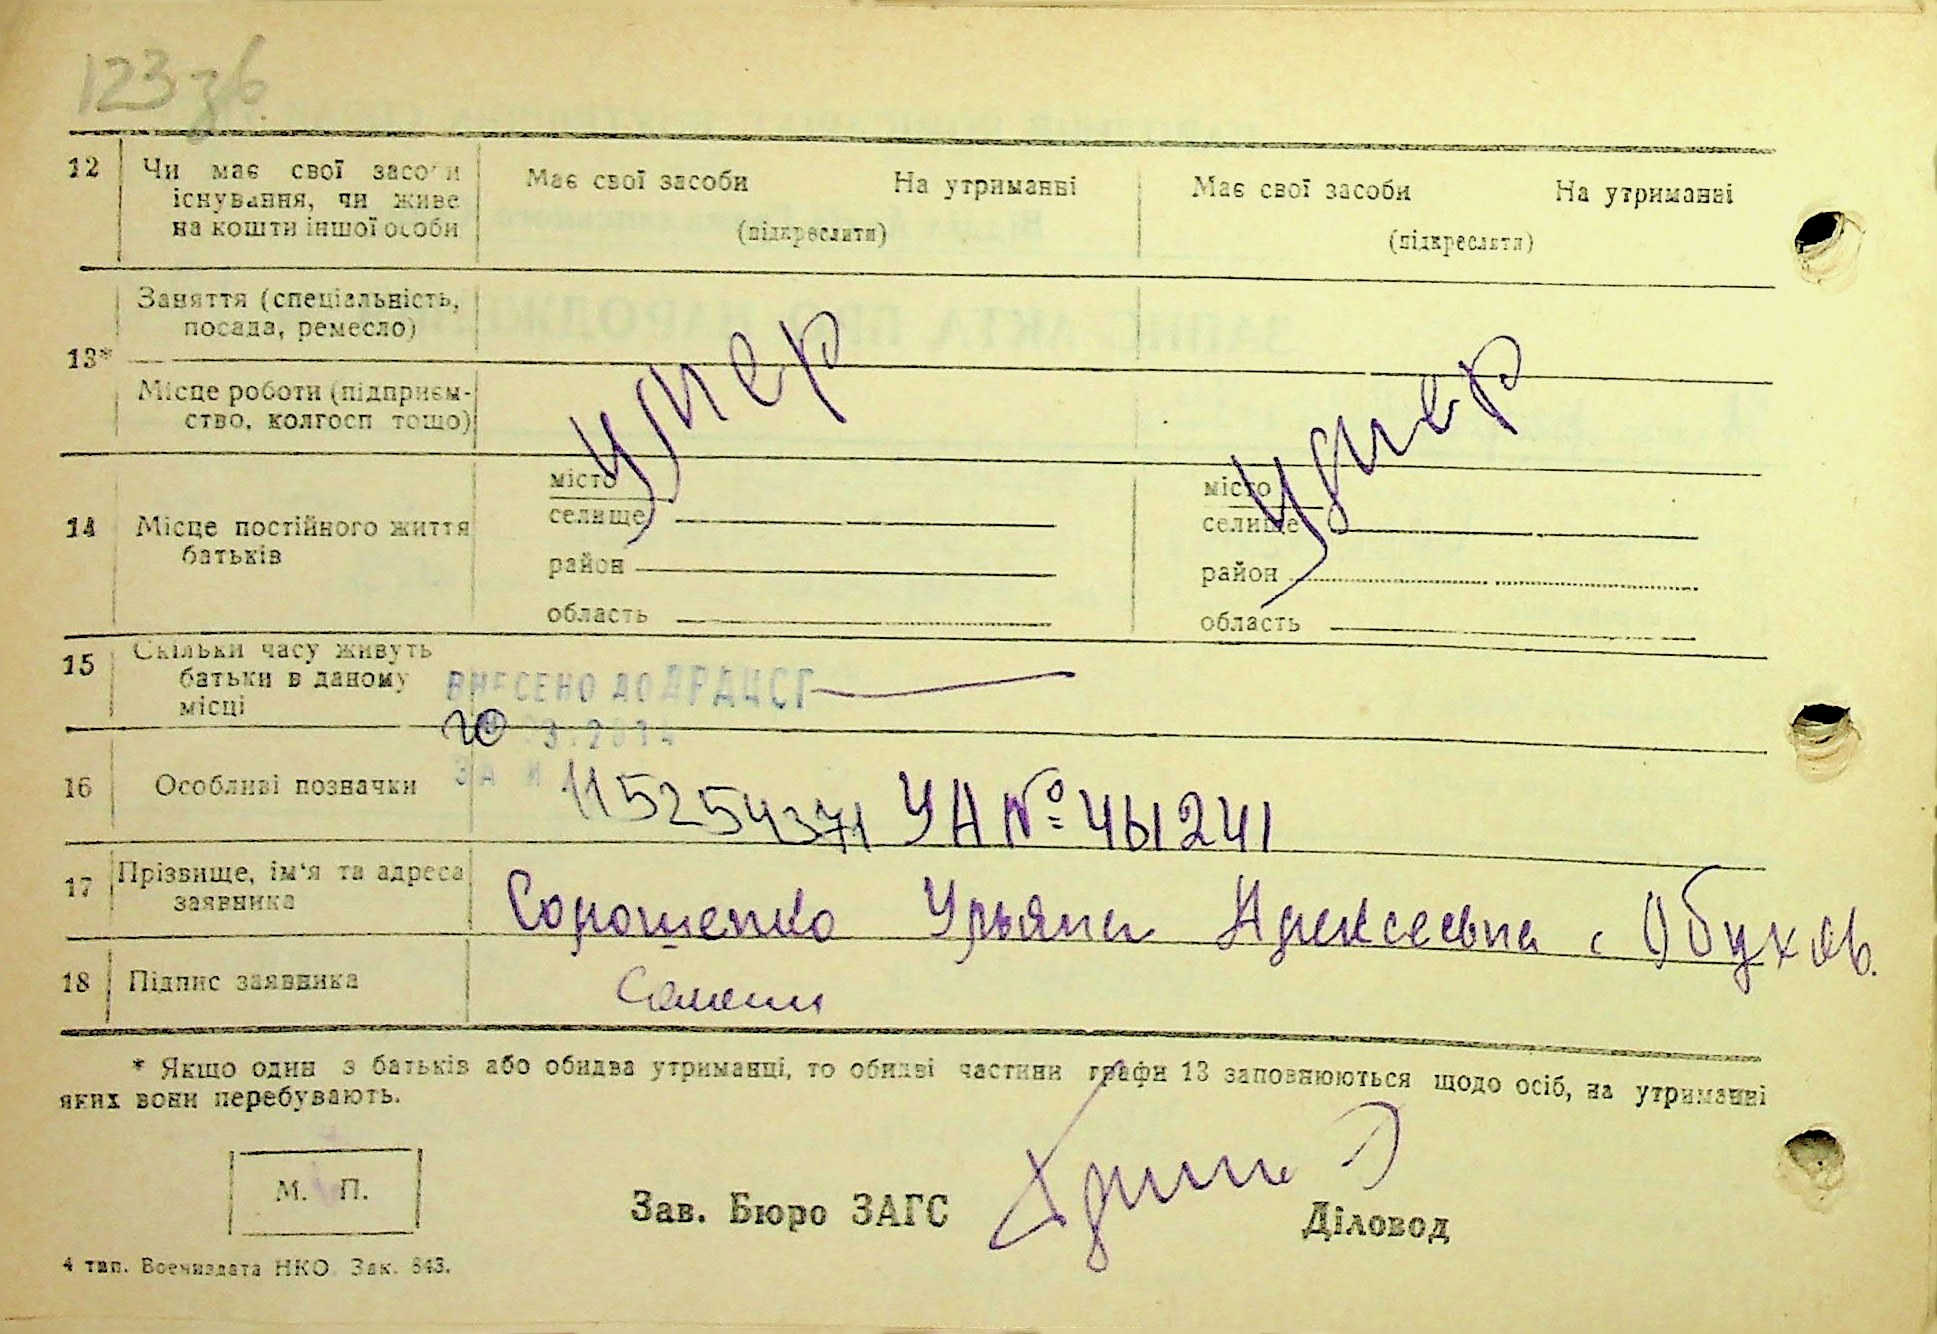 123 зв
12 Чи має свої засоби Має свої засоби На утриманні Має свої засоби На утриманні
існування, чи живе
на кошти іншої особи (підкреслити) (підкреслити)
Заняття (спеціальність,
посада, ремесло)
13*
Місце роботи (підприєм-
ство, колгосп тощо)
умер умер
місто місто
14 Місце постійного життя селище селище
батьків
район район
область область
15 Скільки часу живуть
батьки в даному ВНЕСЕНО ДО ДРАЦСГ
місці
16 Особливі позначки ЗА № 115254371 УА № 461241
17 Прізвище, ім'я та адреса
заявника Сорошенко Ульяна Алексеевна с Обухов.
18 Підпис заявника
* Якщо один з батьків або обидва утриманці, то обидві частини графи 13 заповнюються щодо осіб, на утриманні
яких вони перебувають.
М. П.
Зав. Бюро ЗАГС Діловод
4 тип. Воениздата НКО. Зак. 843.